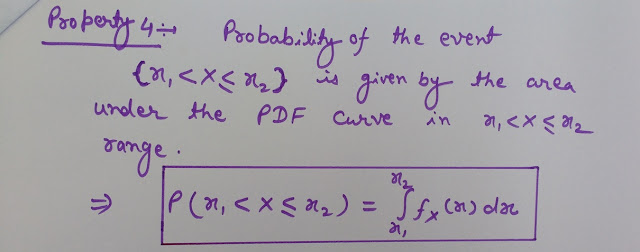 Property 4 :→ Probability of the event
{x₁ < X ≤ x₂} is given by the area
under the PDF curve in x₁ < X ≤ x₂
range.
⇒ P(x₁ < X ≤ x₂) = ∫_{x₁}^{x₂} f_X(x) dx